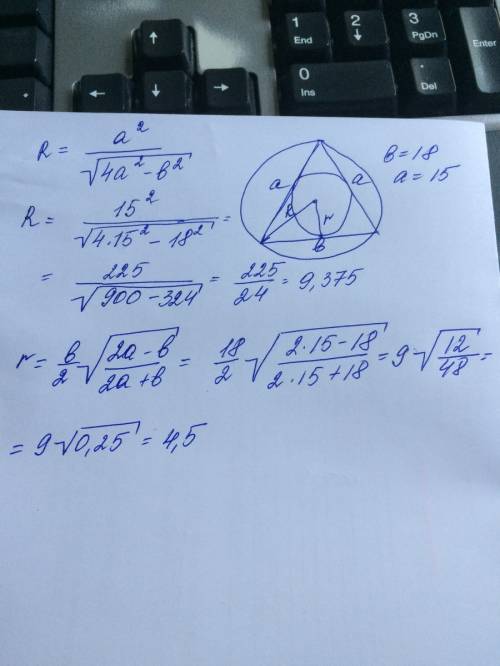 1
End
2
↓
3
PgDn
Enter
↑
←
↓
→
0
Ins
.
Del
R = a² / √(4a² - b²)
b = 18
a = 15
a
a
R
r
b
R = 15² / √(4·15² - 18²) =
= 225 / √(900 - 324) = 225 / 24 = 9,375
r = b/2 √((2a - b) / (2a + b)) = 18/2 √((2·15 - 18) / (2·15 + 18)) = 9 √(12/48) =
= 9 √0,25 = 4,5